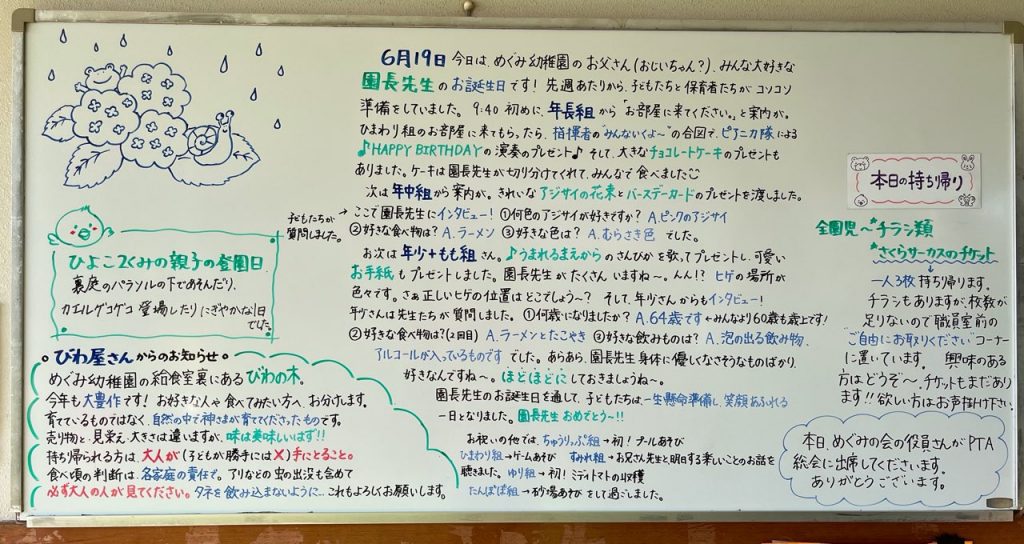 6月19日 今日は、めぐみ幼稚園のお父さん(おじいちゃん?)、みんな大好きな
園長先生のお誕生日です!先週あたりから、子どもたちと保育者たちがコソコソ
準備をしていました。9:40 初めに、年長組から「お部屋に来てください。」と案内が。
ひまわり組のお部屋に来てもらったら、指揮者の"みんないくよ〜"の合図で、ピアニカ隊による
♪HAPPY BIRTHDAYの演奏のプレゼント♪ そして、大きなチョコレートケーキのプレゼントも
ありました。ケーキは園長先生が切り分けてくれて、みんなで食べました
次は年中組から案内が。きれいなアジサイの花束とバースデーカードのプレゼントを渡しました。
子どもたちが質問しました。
→ ここで園長先生にインタビュー!①何色のアジサイが好きですか? A.ピンクのアジサイ
②好きな食べ物は? A.ラーメン ③好きな色は? A.むらさき色 でした。
お次は年少+もも組さん。♪うまれるまえからのさんびかを歌ってプレゼントし、可愛い
お手紙もプレゼントしました。園長先生がたくさんいますね〜。んん!?ヒゲの場所が
色々です。さぁ正しいヒゲの位置はどこでしょう〜?そして、年少さんからもインタビュー!
年少さんは先生たちが質問しました。①何歳になりましたか? A.64歳です ←みんなより60歳も歳上です!
②好きな食べ物は?(2回目) A.ラーメンとたこやき ③好きな飲みものは? A.泡の出る飲み物、
アルコールが入っているものです でした。あらあら、園長先生身体に優しくなさそうなものばかり、
好きなんですね〜。ほどほどにしておきましょうね〜。
園長先生のお誕生日を通して、子どもたちは一生懸命準備し、笑顔あふれる
一日となりました。園長先生おめでとう〜!!
お祝いの他では、ちゅうりっぷ組→初!プールあそび
ひまわり組→ゲームあそび すみれ組→お兄さん先生と、明日する楽しいことのお話を
聴きました。ゆり組→初!ミニトマトの収穫
たんぽぽ組→砂場あそび をして過ごしました。
ひよこ2くみの親子の登園日
裏庭のパラソルの下であそんだり、
カエルゲコゲコ登場したりにぎやかな1日
でした。
びわ屋さんからのお知らせ
めぐみ幼稚園の給食室裏にあるびわの木。
今年も大豊作です!お好きな人や食べてみたい方へ、お分けします。
育てているものではなく、自然の中で神さまが育ててくださったものです。
売り物と、見栄え、大きさは違いますが、味は美味しいはず!!
持ち帰られる方は、大人が(子どもが勝手には×)手にとること。
食べ頃の判断は、各家庭の責任で。アリなどの虫の出没も含めて
必ず大人の人が見てください。タネを飲み込まないように…これもよろしくお願いします。
本日の持ち帰り
全園児〜チラシ類
さくらサーカスのチケット
一人3枚持ち帰ります。
チラシもありますが、枚数が
足りないので職員室前の
"ご自由にお取りください"コーナー
に置いています。興味のある
方はどうぞ〜。チケットもまだあり
ます!!欲しい方はお声掛け下さい。
本日、めぐみの会の役員さんがPTA
総会に出席してくださいます。
ありがとうございます。